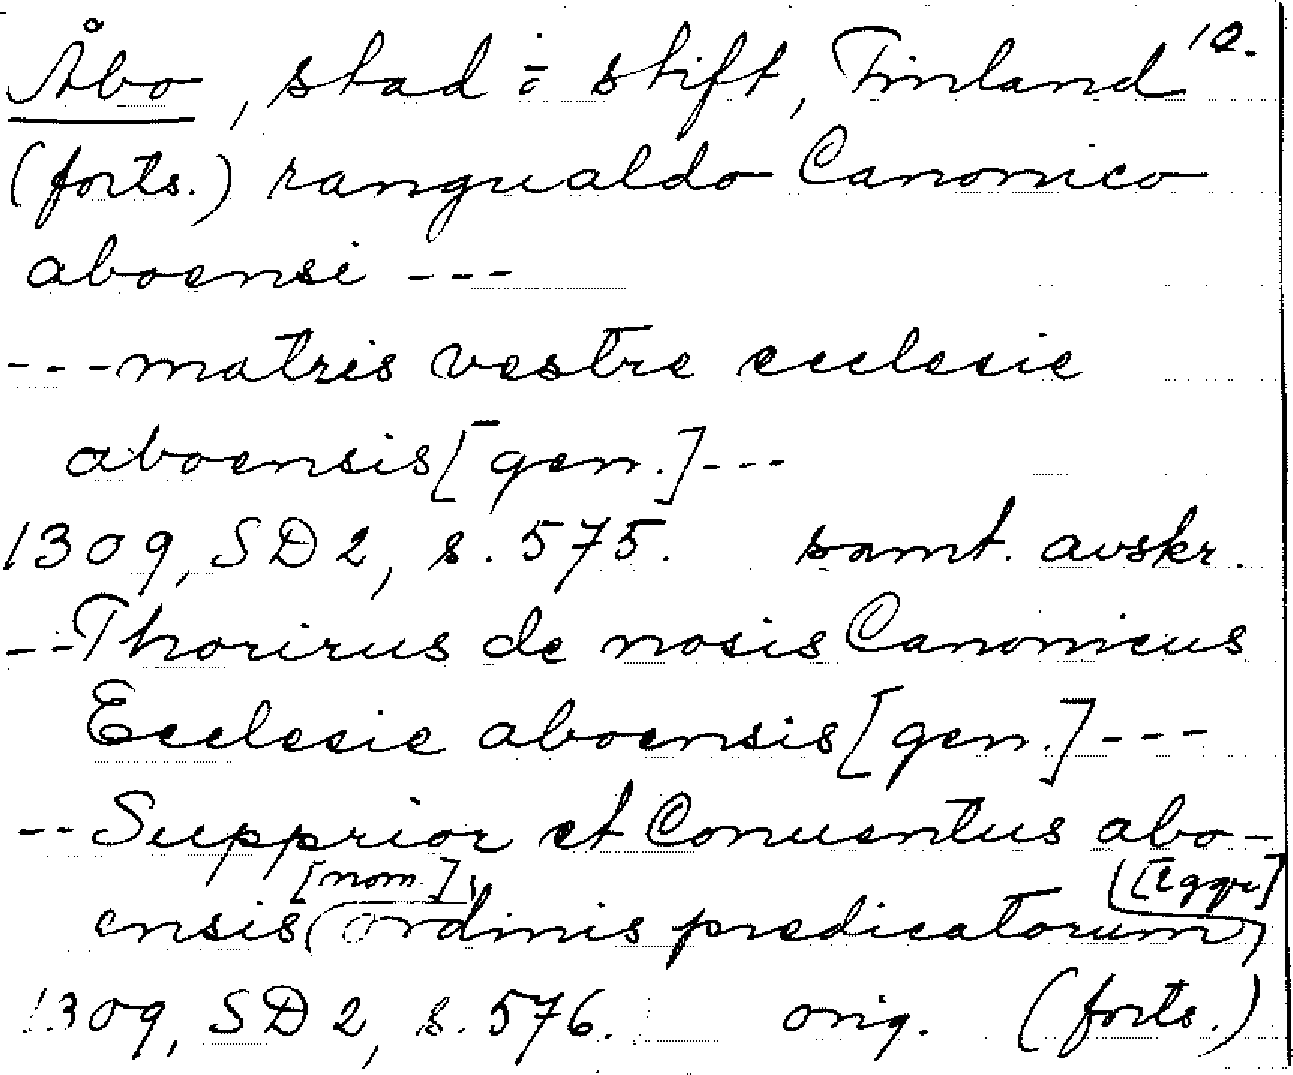 Åbo, stad o. stift, Finland 12.
(forts.) ranguualdo Canonico
aboensi ---
---matris vestre ecclesie
aboensis [gen.]---
1309, SD 2, s. 575. samt. avskr.
--Thorirus de nosis Canonicus
Ecclesie aboensis [gen.]---
--Supprior et Conuentus abo-
ensis [nom.] ordinis predicatorum
1309, SD 2, s. 576. orig. (forts.)